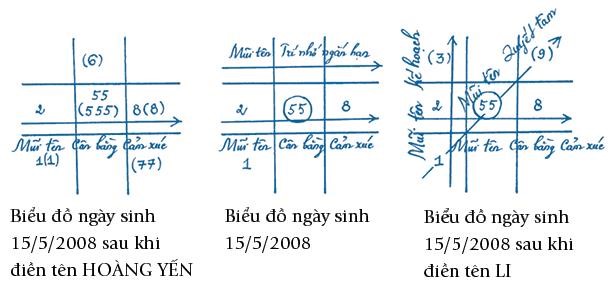 (6)
55
2 (555) 8(8)
Mũi tên Cân bằng Cảm xúc
1(1) (77)
Biểu đồ ngày sinh
15/5/2008 sau khi
điền tên HOÀNG YẾN
Mũi tên Trí nhớ ngắn hạn
2 55 8
Mũi tên Cân bằng Cảm xúc
1
Biểu đồ ngày sinh
15/5/2008
Mũi tên Kế hoạch
(3) (9)
Mũi tên Quyết tâm
2 55 8
Mũi tên Cân bằng Cảm xúc
1
Biểu đồ ngày sinh
15/5/2008 sau khi
điền tên LI